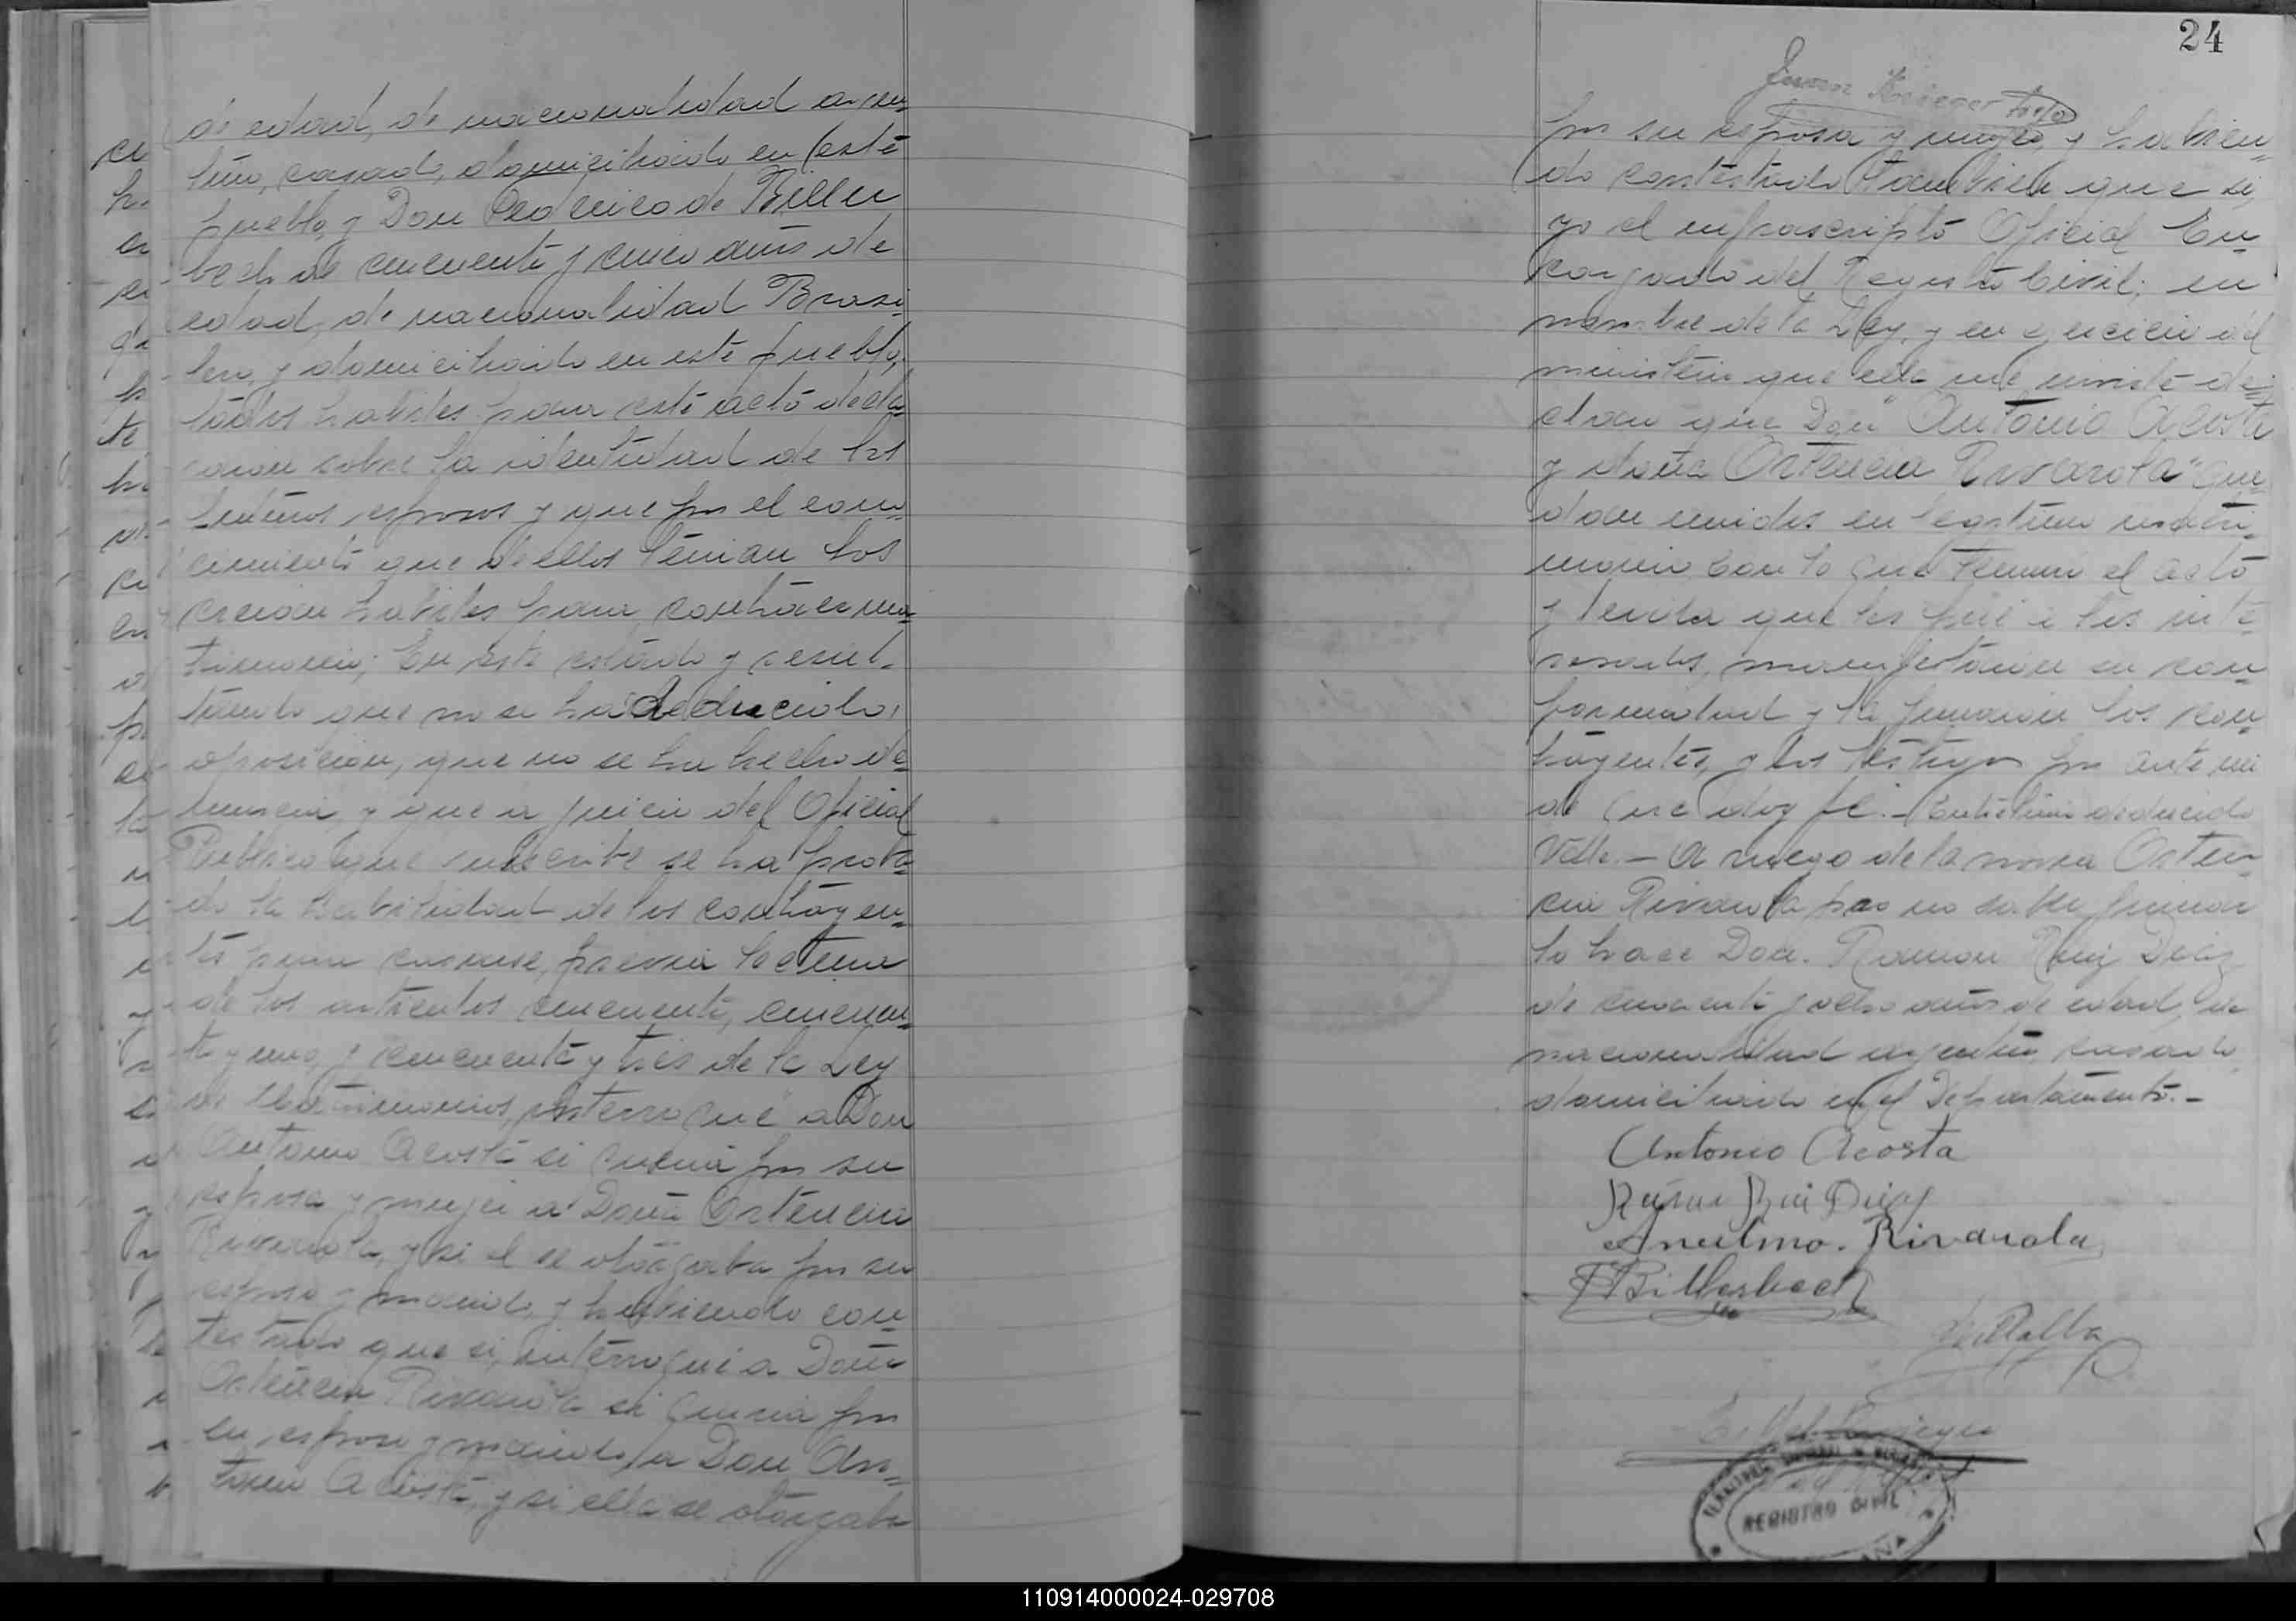 de edad, de nacionalidad argen=
tino, casado, domiciliado en este
pueblo, y Don Federico de Biller
bech de cincuenta y cinco años de
edad, de nacionalidad Brasi
lero, y domiciliado en este pueblo,
todos habiles para este acto decla
raron sobre la identidad de los
futuros esposos y que por el cono=
cimiento que de ellos tenian los
creian habiles para contraer ma=
trimonio; En este estado y resul-
tando que no se ha deducido,
oposicion, que no se ha hecho de=
nuncia, y que a juicio del Oficial
Publico que suscribe se ha proba=
do la habilidad de los contrayen=
tes para casarse, previa lectura
de los articulos cincuenta, cincuen=
ta y uno, y cincuenta y tres de la Ley
de Matrimonios, interrogué a Don
Antonio Acosta si queria por su
esposa y mujer a Doña Ortencia
Rivarola, y si el se otorgaba por su
esposo y marido, y habiendo con=
testado que si, interrogué a Doña
Ortencia Rivarola si queria por
su esposo y marido a Don An=
tonio Acosta, y si ella se otorgaba
24
por su esposa y mujer, y habien=
do contestado tambien que si,
yo el infrascripto Oficial En=
cargado del Registro Civil; en
nombre de la Ley, y en ejercicio del
ministerio que ella me inviste de=
claro que Don "Antonio Acosta
y doña Ortencia Rivarola" que=
dan unidos en legitimo matri=
monio. Con lo que terminó el acto
y leida que les fué a los inte=
resados, manifestaron su con=
formidad y la firmaron los con=
trayentes, y los testigos por ante mi
de que doy fé.- Entre lineas deducido
Vale.- A ruego de la novia Orten=
cia Rivarola por no saber firmar
lo hace Don. Ramon Ruiz Diaz
de cuarenta y ocho años de edad, de
nacionalidad argentino, casado,
domiciliado en el Departamento.-
Antonio Acosta
Ramon Rui Diaz
Anselmo. Rivarola
F Billerbeck
Villalba
REGISTRO CIVIL
110914000024-029708